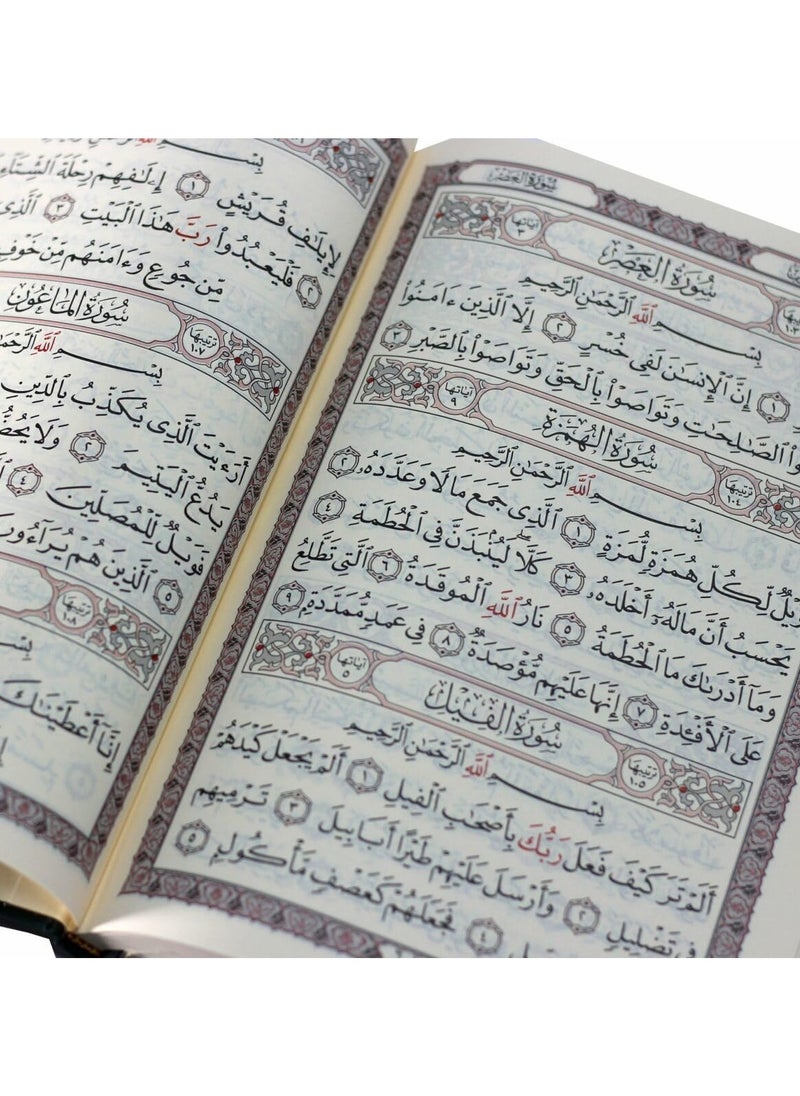 سُورَةُ العَصْرِ
آياتها ٣
سُورَةُ العَصْرِ
ترتيبها ١٠٣
بِسْمِ ٱللَّهِ ٱلرَّحْمَٰنِ ٱلرَّحِيمِ
١ إِنَّ ٱلْإِنسَٰنَ لَفِى خُسْرٍ ٢ إِلَّا ٱلَّذِينَ ءَامَنُوا۟
ٱلصَّٰلِحَٰتِ وَتَوَاصَوْا۟ بِٱلْحَقِّ وَتَوَاصَوْا۟ بِٱلصَّبْرِ ٣
آياتها ٩
سُورَةُ الهُمَزَةِ
ترتيبها ١٠٤
بِسْمِ ٱللَّهِ ٱلرَّحْمَٰنِ ٱلرَّحِيمِ
وَيْلٌ لِّكُلِّ هُمَزَةٍ لُّمَزَةٍ ١ ٱلَّذِى جَمَعَ مَالًا وَعَدَّدَهُۥ ٢
يَحْسَبُ أَنَّ مَالَهُۥٓ أَخْلَدَهُۥ ٣ كَلَّا ۖ لَيُنۢبَذَنَّ فِى ٱلْحُطَمَةِ ٤
وَمَآ أَدْرَىٰكَ مَا ٱلْحُطَمَةُ ٥ نَارُ ٱللَّهِ ٱلْمُوقَدَةُ ٦ ٱلَّتِى تَطَّلِعُ
عَلَى ٱلْأَفْـِٔدَةِ ٧ إِنَّهَا عَلَيْهِم مُّؤْصَدَةٌ ٨ فِى عَمَدٍ مُّمَدَّدَةٍۭ ٩
آياتها ٥
سُورَةُ الفِيلِ
ترتيبها ١٠٥
بِسْمِ ٱللَّهِ ٱلرَّحْمَٰنِ ٱلرَّحِيمِ
أَلَمْ تَرَ كَيْفَ فَعَلَ رَبُّكَ بِأَصْحَٰبِ ٱلْفِيلِ ١ أَلَمْ يَجْعَلْ كَيْدَهُمْ
فِى تَضْلِيلٍ ٢ وَأَرْسَلَ عَلَيْهِمْ طَيْرًا أَبَابِيلَ ٣ تَرْمِيهِم
٤ فَجَعَلَهُمْ كَعَصْفٍ مَّأْكُولٍۭ ٥
بِسْمِ ٱللَّهِ
لِإِيلَٰفِ قُرَيْشٍ ١ إِۦلَٰفِهِمْ رِحْلَةَ ٱلشِّتَآءِ
٢ فَلْيَعْبُدُوا۟ رَبَّ هَٰذَا ٱلْبَيْتِ ٣ ٱلَّذِىٓ
مِّن جُوعٍ وَءَامَنَهُم مِّنْ خَوْفٍۭ
ترتيبها ١٠٧
سُورَةُ المَاعُونِ
بِسْمِ ٱللَّهِ
أَرَءَيْتَ ٱلَّذِى يُكَذِّبُ بِٱلدِّينِ
يَدُعُّ ٱلْيَتِيمَ ٢ وَلَا يَحُضُّ
فَوَيْلٌ لِّلْمُصَلِّينَ ٤
٥ ٱلَّذِينَ هُمْ يُرَآءُونَ
ترتيبها ١٠٨
بِسْمِ
إِنَّآ أَعْطَيْنَٰكَ